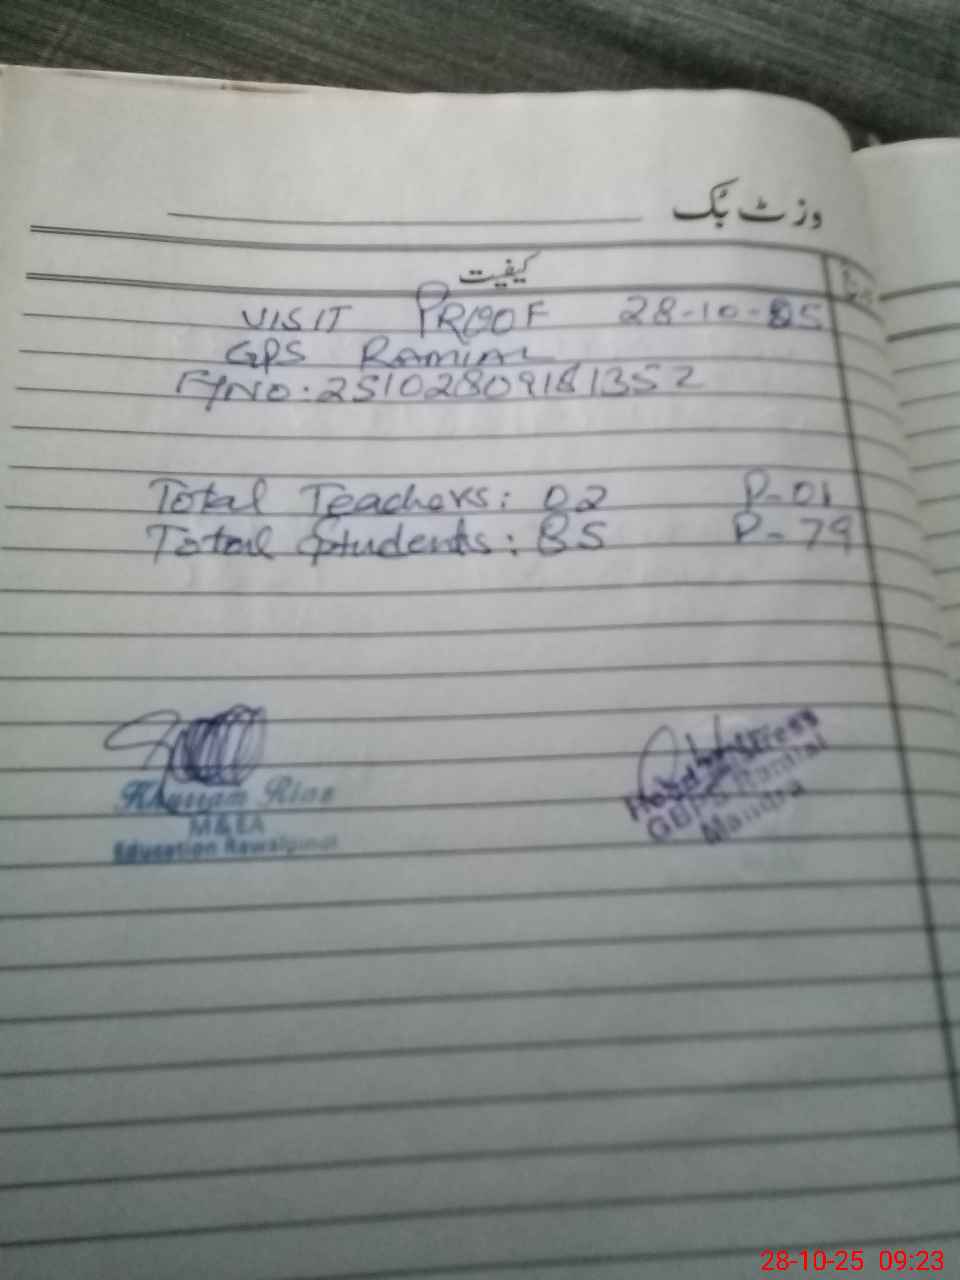 وزٹ بُک
کیفیت
VISIT PROOF 28-10-25
GPS RAMIAL
F/NO: 25102809181352
Total Teachers: 02 P-01
Total Students: 85 P-79
Khurram Riaz
M&EA
Education Rawalpindi
Headmistress
GGPS Ramial
Mandra
28-10-25 09:23